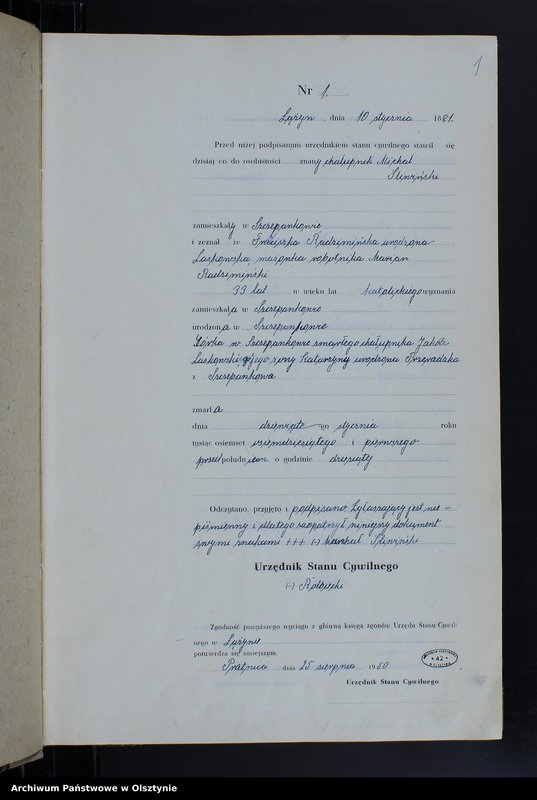 1
Nr 1.
Łążyn, dnia 10 stycznia 1881.
Przed niżej podpisanym urzędnikiem stanu cywilnego stawił się
dzisiaj co do osobistości znany chałupnik Michał
Śliwiński
zamieszkały w Szczepankowie
i zeznał, że Franciszka Radzimińska urodzona
Laskowska, małżonka robotnika Marjan
Radzimiński
39 lat w wieku lat katolickiego wyznania
zamieszkała w Szczepankowie
urodzona w Szczepankowie
Córka w Szczepankowie zmarłego chałupnika Jakób
Laskowski i jego żony Katarzyny urodzona
z Szczepankowa
zmarła
dnia dziewiątego stycznia roku
tysiąc osiemset osiemdziesiątego i pierwszego
przed południem o godzinie dziesiątej
Odczytano, przyjęto i podpisano Zgłaszający jest nie-
piśmienny i dlatego zaopatrzył niniejszy dokument
swymi znakami +++ (-) Michał Śliwiński
Urzędnik Stanu Cywilnego
(-)
Zgodność powyższego wyciągu z główną księgą zgonów Urzędu Stanu Cywil-
nego w Łążynie
potwierdza się niniejszym.
Prątnica, dnia 25 sierpnia 1950
Urzędnik Stanu Cywilnego
42
Archiwum Państwowe w Olsztynie